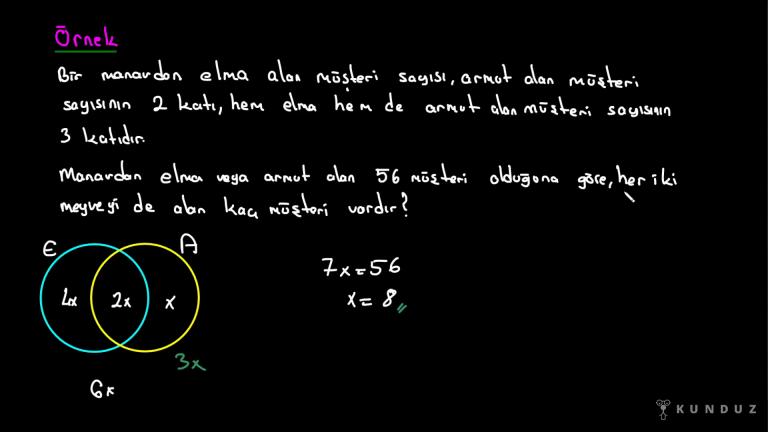 Örnek
Bir manavdan elma alan müşteri sayısı, armut alan müşteri
sayısının 2 katı, hem elma hem de armut alan müşteri sayısının
3 katıdır.
Manavdan elma veya armut alan 56 müşteri olduğuna göre, her iki
meyveyi de alan kaç müşteri vardır?
E A
4x 2x x
3x
6x
7x = 56
x = 8
KUNDUZ